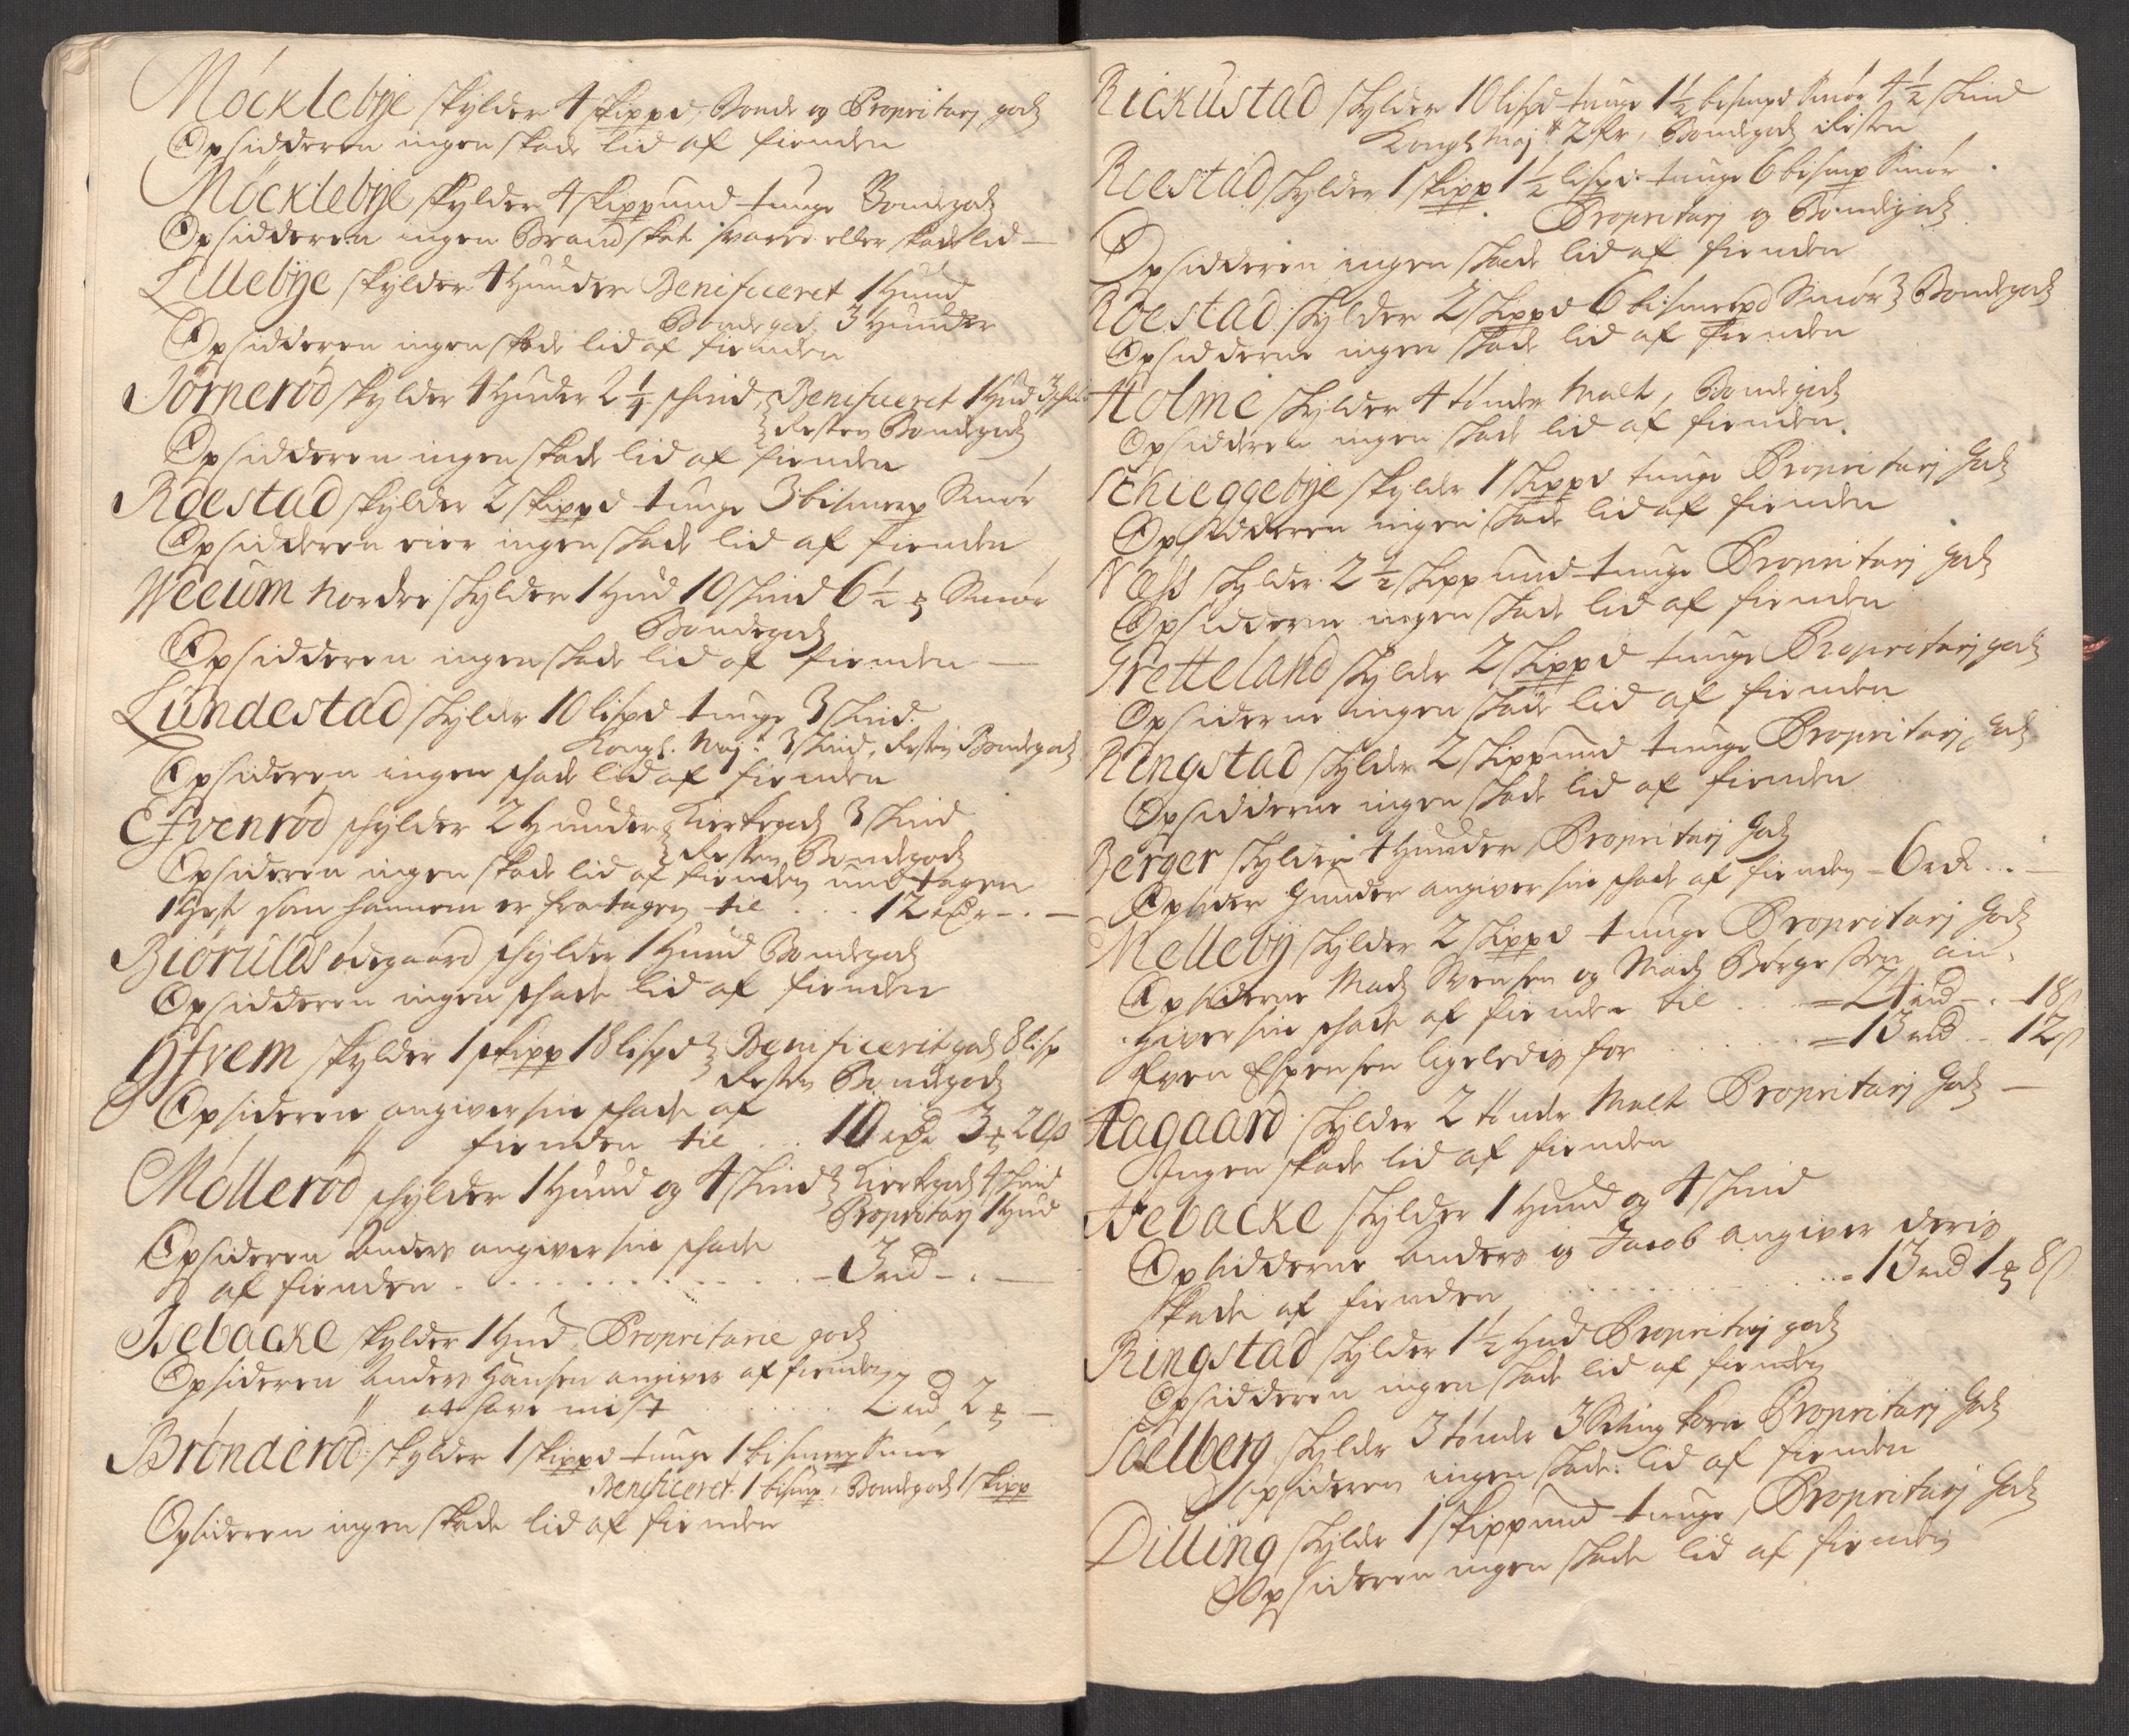 Mócklebÿe skylder 4 skippd, Bonde og Propritarj godz
Opsidderen ingen skade lid af fienden
Mócklebÿe skylder 4 skippund tunge Bondegodz
Opsidderen ingen Brandskat svared eller skade lid —
Lillebÿe skylder 4 Hunder Benificeret 1 Hund
Bondegod: 3 Hunder
Opsidderen ingen skade lid af fienden
Jórneród skylder 4 Huder 2 1/4 schind, Benificeret 1 Hud 3 schi
Resten Bondegodz
Opsidderen ingen skade lid af fienden
Róestad skylder 2 skippd tunge 3 bismerp Smór
Opsidderen eier ingen skade lid af fienden
Weeum Nordre skylder 1 Hud 10 skind 6 1/2 Smór
Bondegodz
Opsidderen ingen skade lid af fienden —
Lundestad skylder 10 lispd tunge 3 skind.
Kongl. Maj: 3 skind, Resten Bondegodz
Opsideren ingen skade lid af fienden
Efvenród schylder 2 Hunder Kierkegodz 3 skind
Resten Bondegodz
Opsideren ingen skade lid af fienden undtagen
1 Hest som hannem er fratagen til . . . 12 rdr - . —
Biórulds ódegaard schylder 1 Hund Bondegodz
Opsidderen ingen schade lid af fienden
Hfrem skylder 1 skipp 18 lispd Benificerit godz 8 lisp
Resten Bondegodz
Opsideren angiver sin schade af
" fienden til . . . 10 rd 3 20 s
Mólleród schylder 1 Hund og 4 skind Kierkgodz 4 skind
Propritarj 1 Hud
Opsideren Anders angiver sin schade
af fienden . . . . . . . . - 3 rd - . —
Isebacke skylder 1 Hud, Propritarie godz
Opsideren Anders Hansen angiver af fienden
" at have mist . . . . . 2 rd 2 —
Brónderód skylder 1 skippd tunge 1 bismerp Smór
Benificeret 1 bismp, Bondegodz 1 skipp
Opsideren ingen skade lid af fienden
Rickustad skylder 10 lispd tunge 1 1/2 bismpd Smór 4 1/2 skind
Kongl Maj 2 Kr, Bondegodz Resten
Roestad skylder 1 skipp 1 1/2 lispd tunge 6 bismp Smór
Propritarj og Bondegodz
Opsidderen ingen skade lid af fienden
Roestad skylder 2 skippd 6 bismerpd Smór Bondegodz
Opsidderne ingen skade lid af fienden
Holme skylder 4 tónder Malt, Bondegodz
Opsidderen ingen skade lid af fienden.
Schieggebÿe skylder 1 skippd tunge Propritarj Godz
Opsidderen ingen skade lid af fienden
Næss skylder 2 1/2 skippund tunge Propritarj Godz
Opsidderne ingen skade lid af fienden
Gretteland skylder 2 skippd tunge Propritarj godz
Opsiderne ingen skade lid af fienden
Ringstad skylder 2 skippund tunge Propritarj, Godz
Opsidderne ingen skade lid af fienden
Berger skylder 4 Hunder, Propritarj Godz
Opsider Gunder angiver sin schade af fienden - 6 rd . . —
Mellebÿ skylder 2 skippd tunge Propritarj Godz
Opsiderne Madz Svensen og Madz Bórgesen an-
giver sin schade af fienden til . . . 24 rd - . - 18 s
Even Espensen ligeledis for . . . . 13 rd . . 12 s
Aagaard skylder 2 tónde Malt Propritarj Godz —
Ingen skade lid af fienden
Isebacke skylder 1 Hund og 4 skind
Opsidderne Anders og Jacob angiver deris
skade af fienden . . . . . . . 13 rd 1 8 s
Ringstad skylder 1 1/2 Hud Propritarj godz
Opsidderen ingen skade lid af fienden
Soelberg skylder 3 tónde 3 korn Propritarj Godz
Opsideren ingen skade lid af fienden
Dilling skylder 1 skippund tunge, Propritarj Godz
Opsideren ingen skade lid af fienden